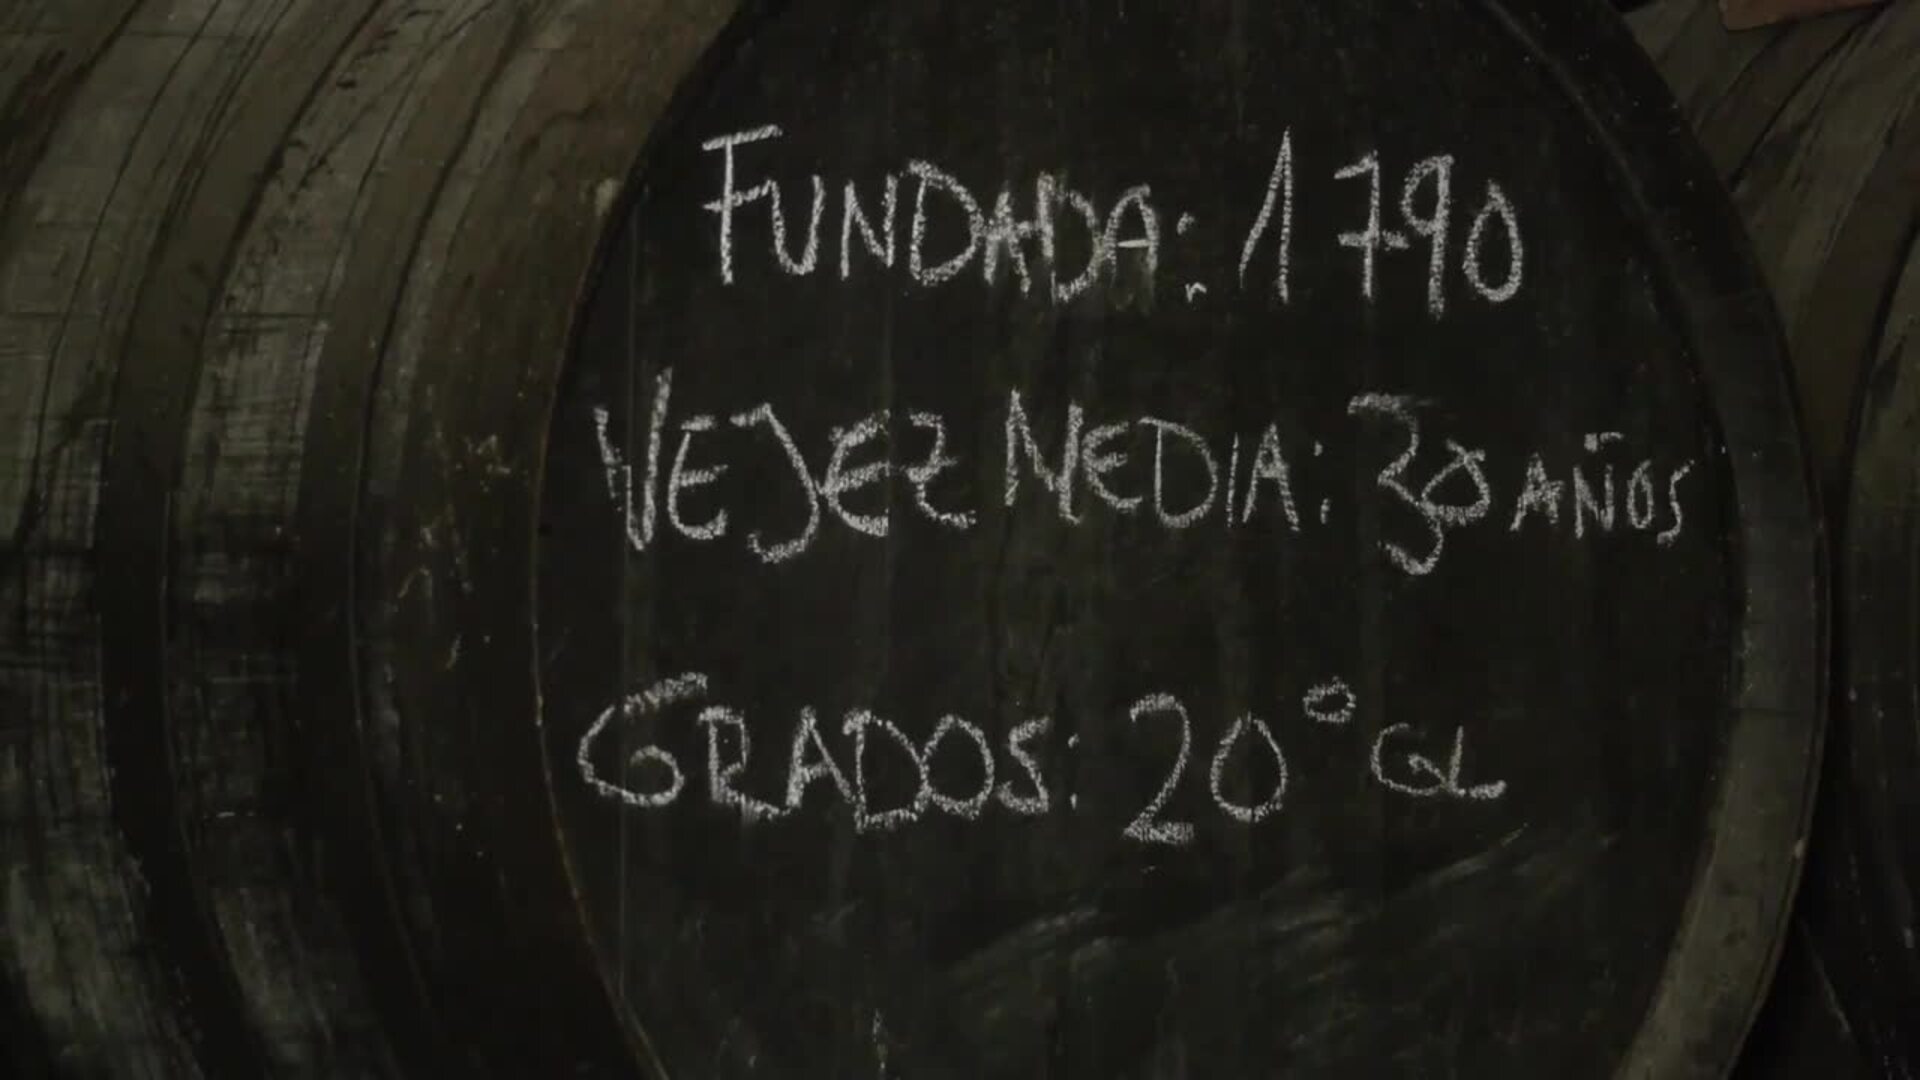 FUNDADA: 1790
VEJEZ MEDIA: 30 AÑOS
GRADOS: 20° GL